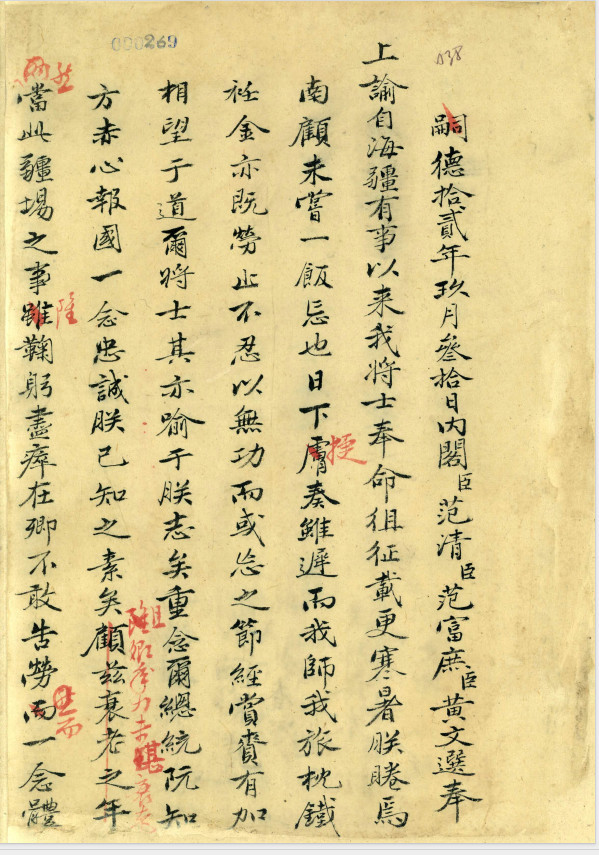 000269
038
嗣德拾貳年玖月叄拾日内閣臣范清臣范富庶臣黃文選奉
上諭自海疆有事以来我將士奉命徂征載更寒暑朕睠焉
南顧未嘗一飯忘也日下膚奏雖遲而我師我旅枕鐵
授
衽金亦既勞止不忍以無功而或忘之節經賞賚有加
相望于道爾將士其亦喻于朕志矣重念爾總統阮知
方赤心報國一念忠誠朕已知之素矣顧兹衰老之年
當此疆埸之事雖鞠躬盡瘁在卿不敢告勞而一念體
然